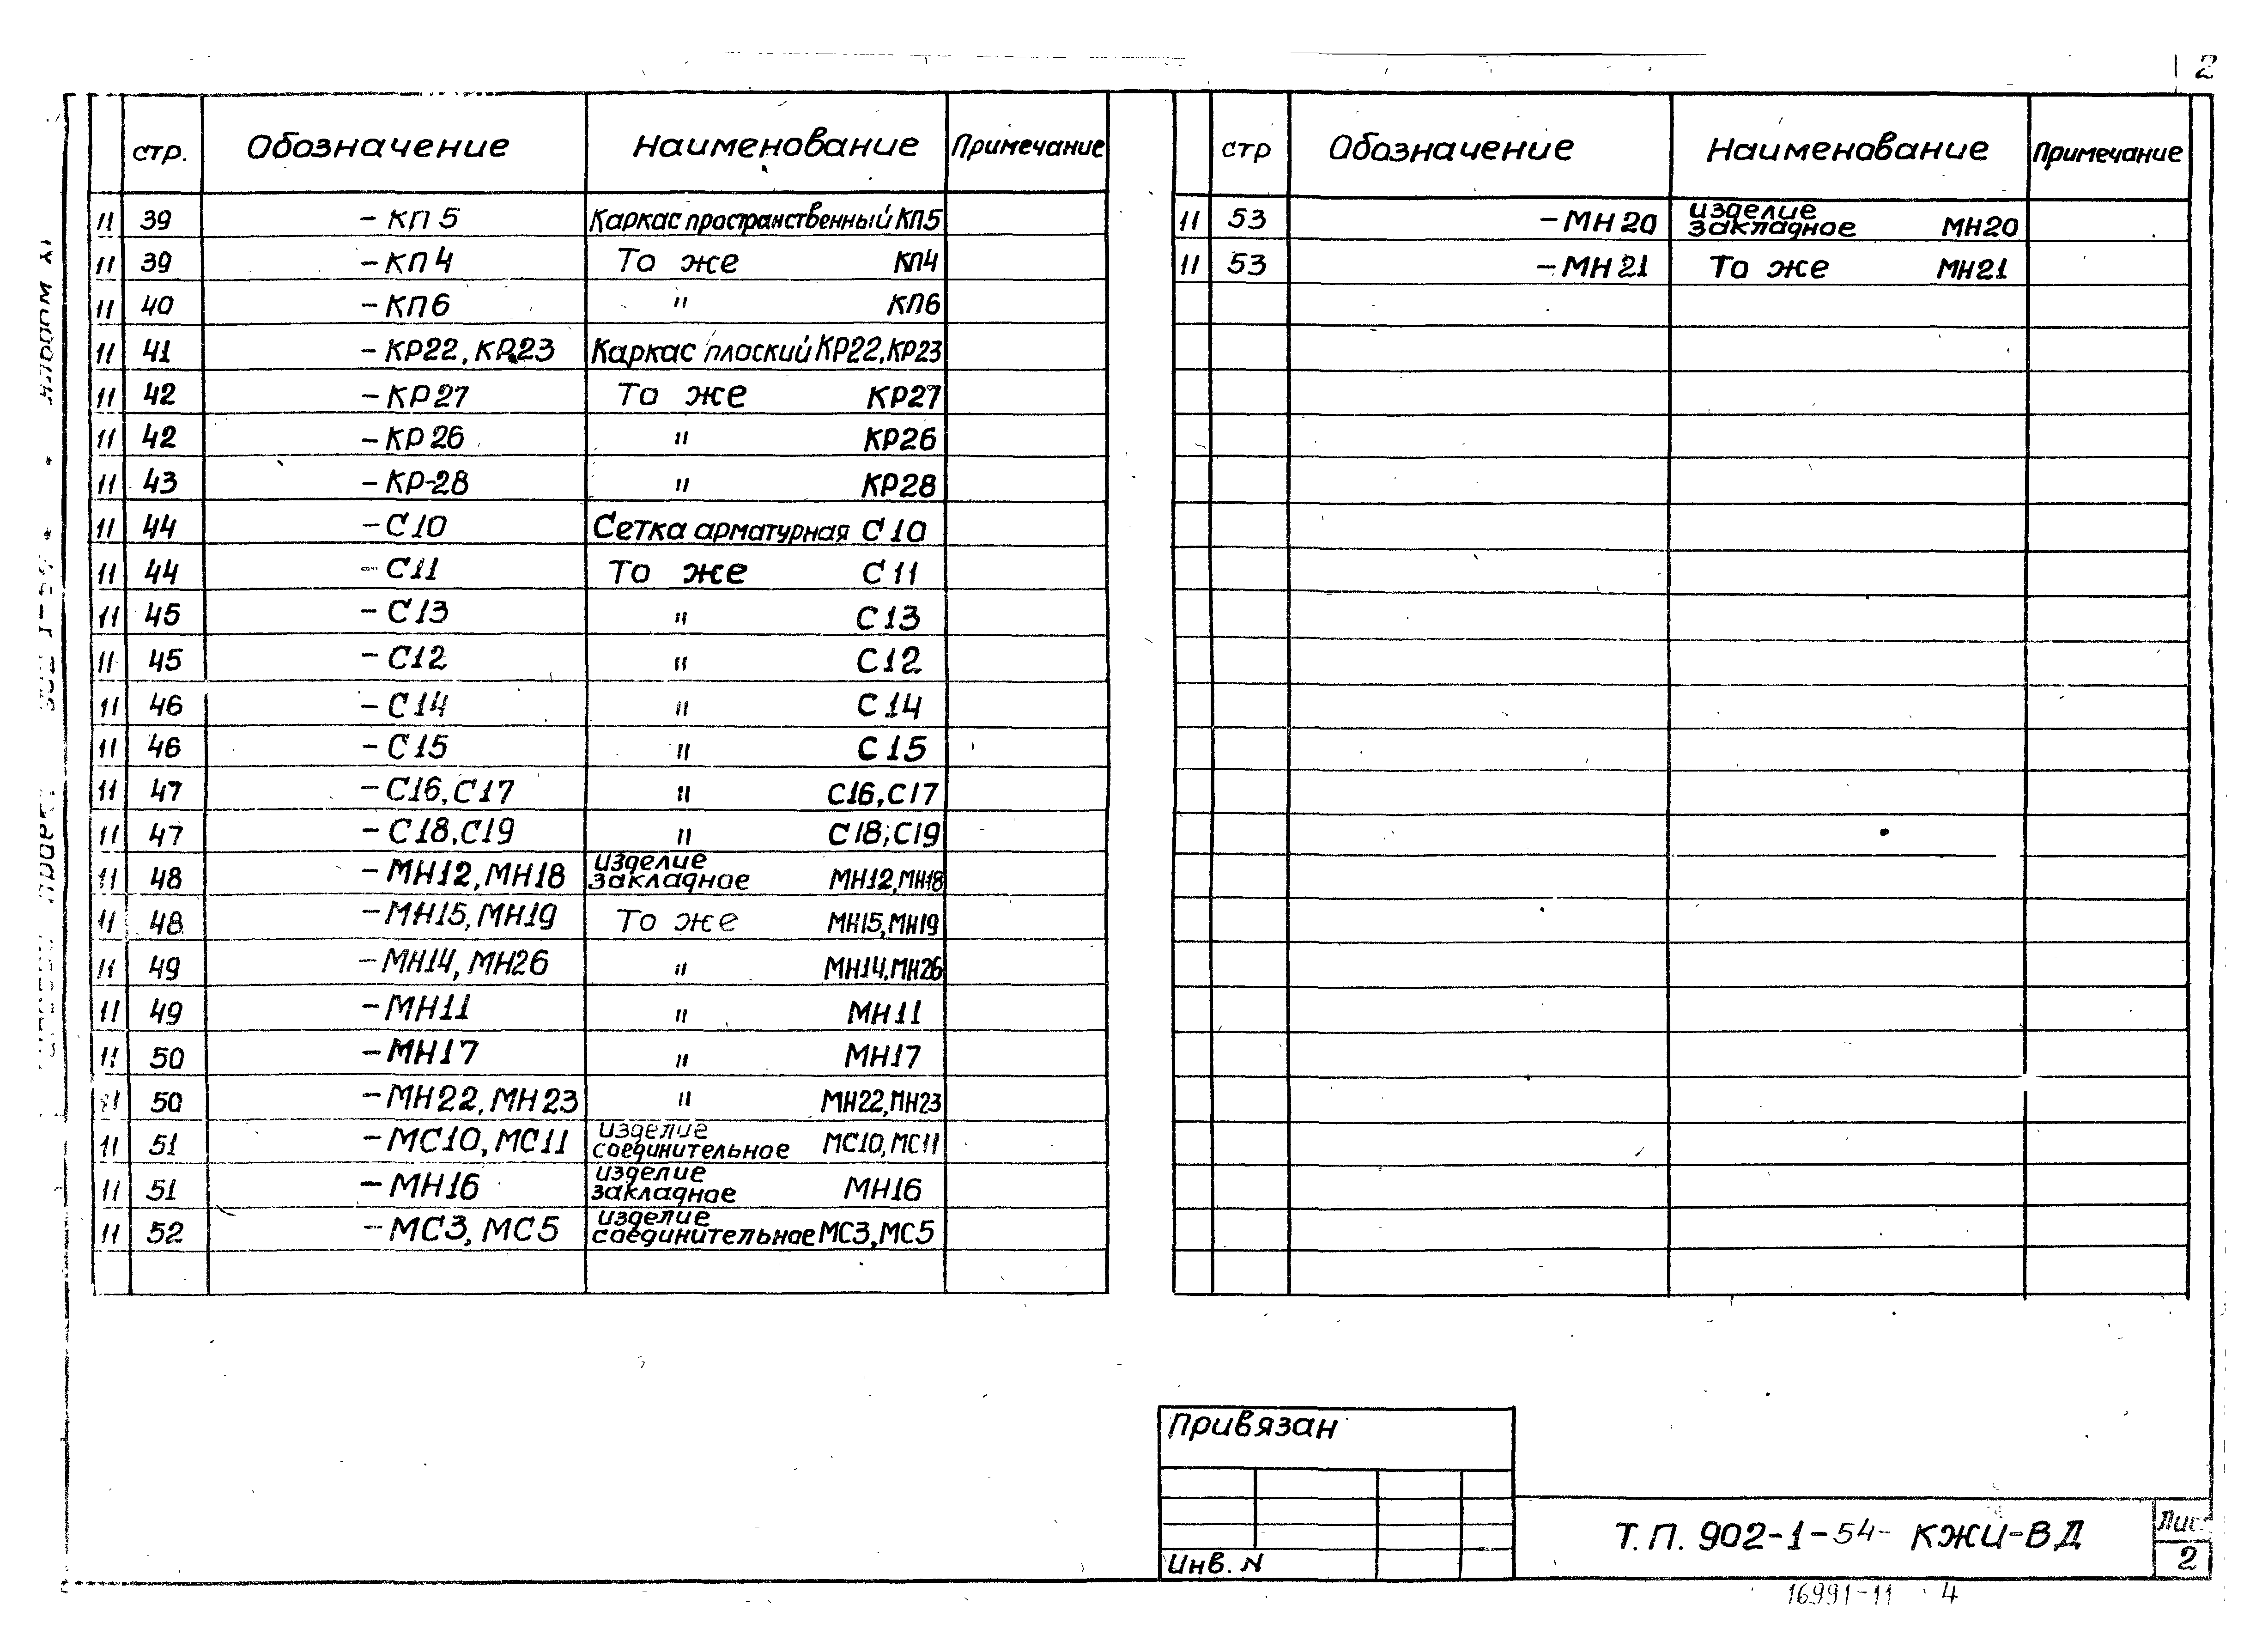 2
стр. Обозначение Наименование Примечание
11 39 -КП5 Каркас пространственный КП5
11 39 -КП4 То же КП4
11 40 -КП6 " КП6
11 41 -КР22, КР23 Каркас плоский КР22, КР23
11 42 -КР27 То же КР27
11 42 -КР26 " КР26
11 43 -КР-28 " КР28
11 44 -С10 Сетка арматурная С10
11 44 -С11 То же С11
11 45 -С13 " С13
11 45 -С12 " С12
11 46 -С14 " С14
11 46 -С15 " С15
11 47 -С16, С17 " С16, С17
11 47 -С18, С19 " С18, С19
11 48 -МН12, МН18 изделие закладное МН12, МН18
11 48 -МН15, МН19 То же МН15, МН19
11 49 -МН14, МН26 " МН14, МН26
11 49 -МН11 " МН11
11 50 -МН17 " МН17
11 50 -МН22, МН23 " МН22, МН23
11 51 -МС10, МС11 изделие соединительное МС10, МС11
11 51 -МН16 изделие закладное МН16
11 52 -МС3, МС5 изделие соединительное МС3, МС5
стр Обозначение Наименование Примечание
11 53 -МН20 изделие закладное МН20
11 53 -МН21 То же МН21
Привязан
Инв. N
Т.П. 902-1-54- КЖИ-ВД
Лис
2
16991-11 4
Альбом XI
проект